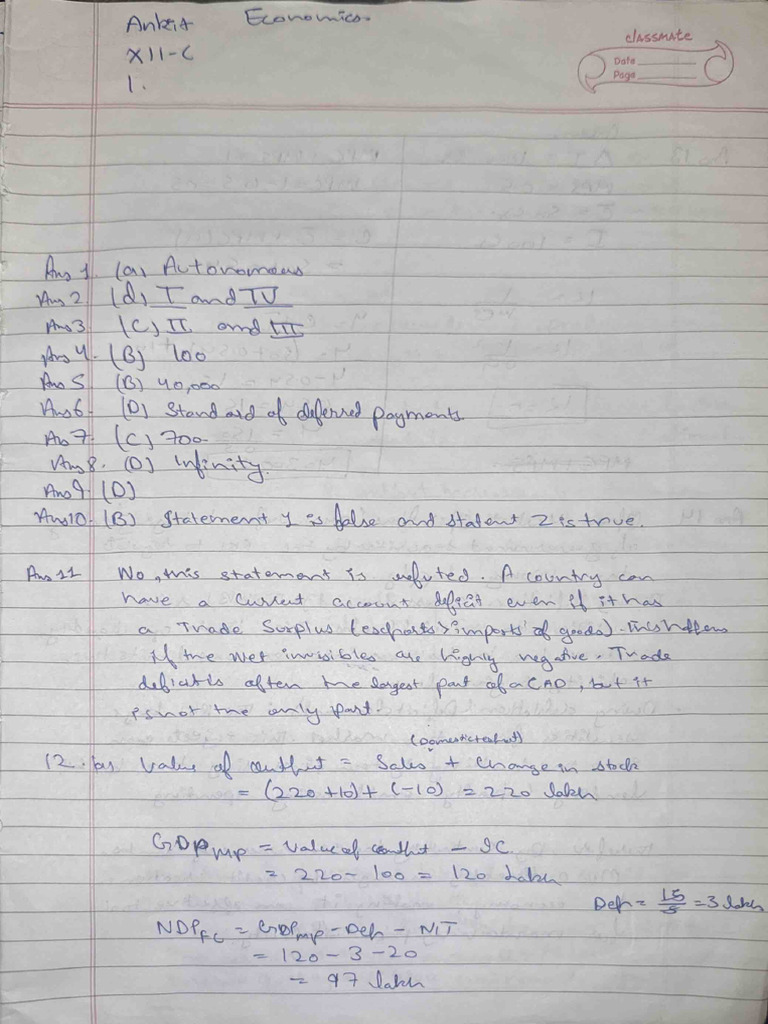 Ankit Economics.
XII-C
1.
classmate
Date
Page
Ans 1. (a) Autonomous
Ans 2 (d) I and IV
Ans 3 (C) II and III
Ans 4. (B) 100
Ans 5 (B) 40,000
Ans 6. (D) Standard of deferred payments.
An 7. (C) 700-
Ans 8. (D) Infinity.
Ans 9. (D)
Ans 10. (B) Statement 1 is false and statent 2 is true.
Ans 11 No, this statement is refuted. A country can
have a current account deficit even if it has
a Trade Surplus (exports > imports of goods). This happens
if the Net invisibles are highly negative. Trade
deficit is often the largest part of a CAD, but it
is not the only part.
(Domestic+export)
12. Value of output = Sales + Change in stock
= (220 + 10) + (-10) = 220 lakh
GDPMP = Value of output - IC.
= 220 - 100 = 120 Lakh
Dep = 15/5 = 3 lakh
NDPFC = GDPMP - Dep - NIT
= 120 - 3 - 20
= 97 lakh